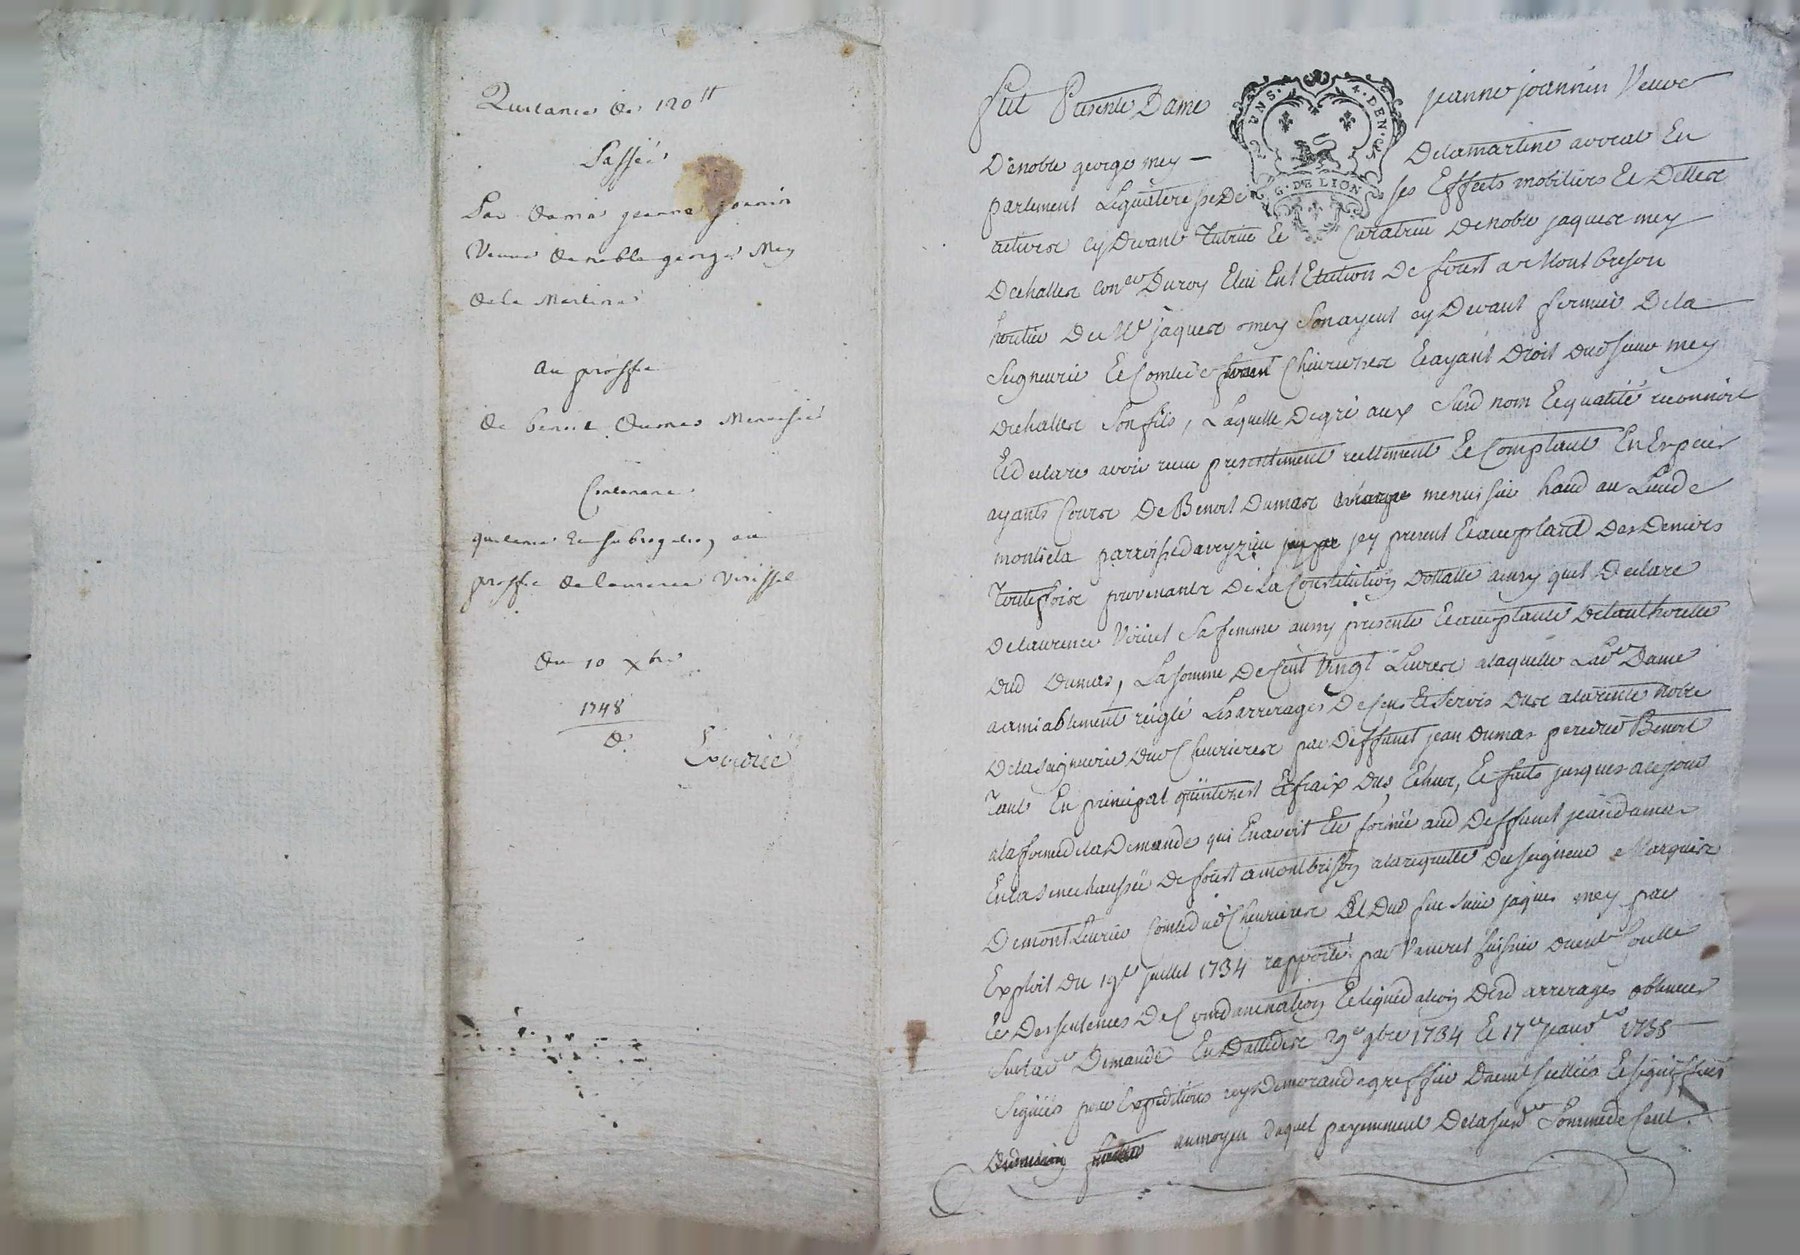 Quittance de 120 tt
Passée
Par dame jeanne joannin
Veuve de noble george Mey
de la Martine
au proffit
de benoit dumas Menuisier
Contenant
quittance et subrogation au
proffit de laurence Virissel
du 10 xbre
1748
d.
Expediée
fut Presente Dame jeanne joannin Veuve
UNS. 4. DEN.
G. DE LION
Denoble george mey — Delamartine avocat En
parlement ses Effects mobiliers Et Dettes
actives cy Devant Tutrice Et Curatrice Denoble jaques mey
Dechalles conser Duroy Eleu En L'Election De forest a Montbrison
heritier De Me jaques mey Son ayeul cy Devant fermier Dela
Seigneurie Et Comté de Chevrieres Et ayant Droit Dud sieur mey
Dechalles Son fils, Laquelle Degré aux Susd nom Et qualité reconnoit
Et declare avoir receu presentement reellement Et Comptant En Especes
ayants Cours De Benoit Dumas menuisier habt au Lieu de
parroisse daveyzieu jcy present Et acceptant Des Deniers
Touttefois provenants De La Constitution Dottalle ainsy quil Declare
De laurence Virisel Sa femme aussy presente Et acceptante De lauthorité
Dud Dumas, La somme De Cent Vingt Livres a laquelle Lade Dame
a amiablement reiglé Les arrerages De Cens Et Servis Dus a la rente noble
De la Seigneurie Dud Chevrieres par Deffunt jean Dumas pere Dud Benoit
Tant En principal quinterest Et fraix Dus, Echus, Et faits jusques a ce jour
a la forme de la Demande qui En avoit Eté formée aud Deffunt jean dumas
En la Senechaussée De forest a montbrison a la requette Du Seigneur Marquis
De mont Comte dud Chevrieres Et Dud feu Sieur jaques mey par
Exploit Du 19e juillet 1734 rapporté par huissier
Et Des sentences De Condamnation Et liquidation Desd arrerages obtenues
Sur lade Demande En Datte Des 29e 9bre 1734 Et 17e janver 1735
Signées pour Expeditions reydemorande greffier Duemt scellées Et Signiffiées
au moyen duquel payemment De la susde Somme de Cent